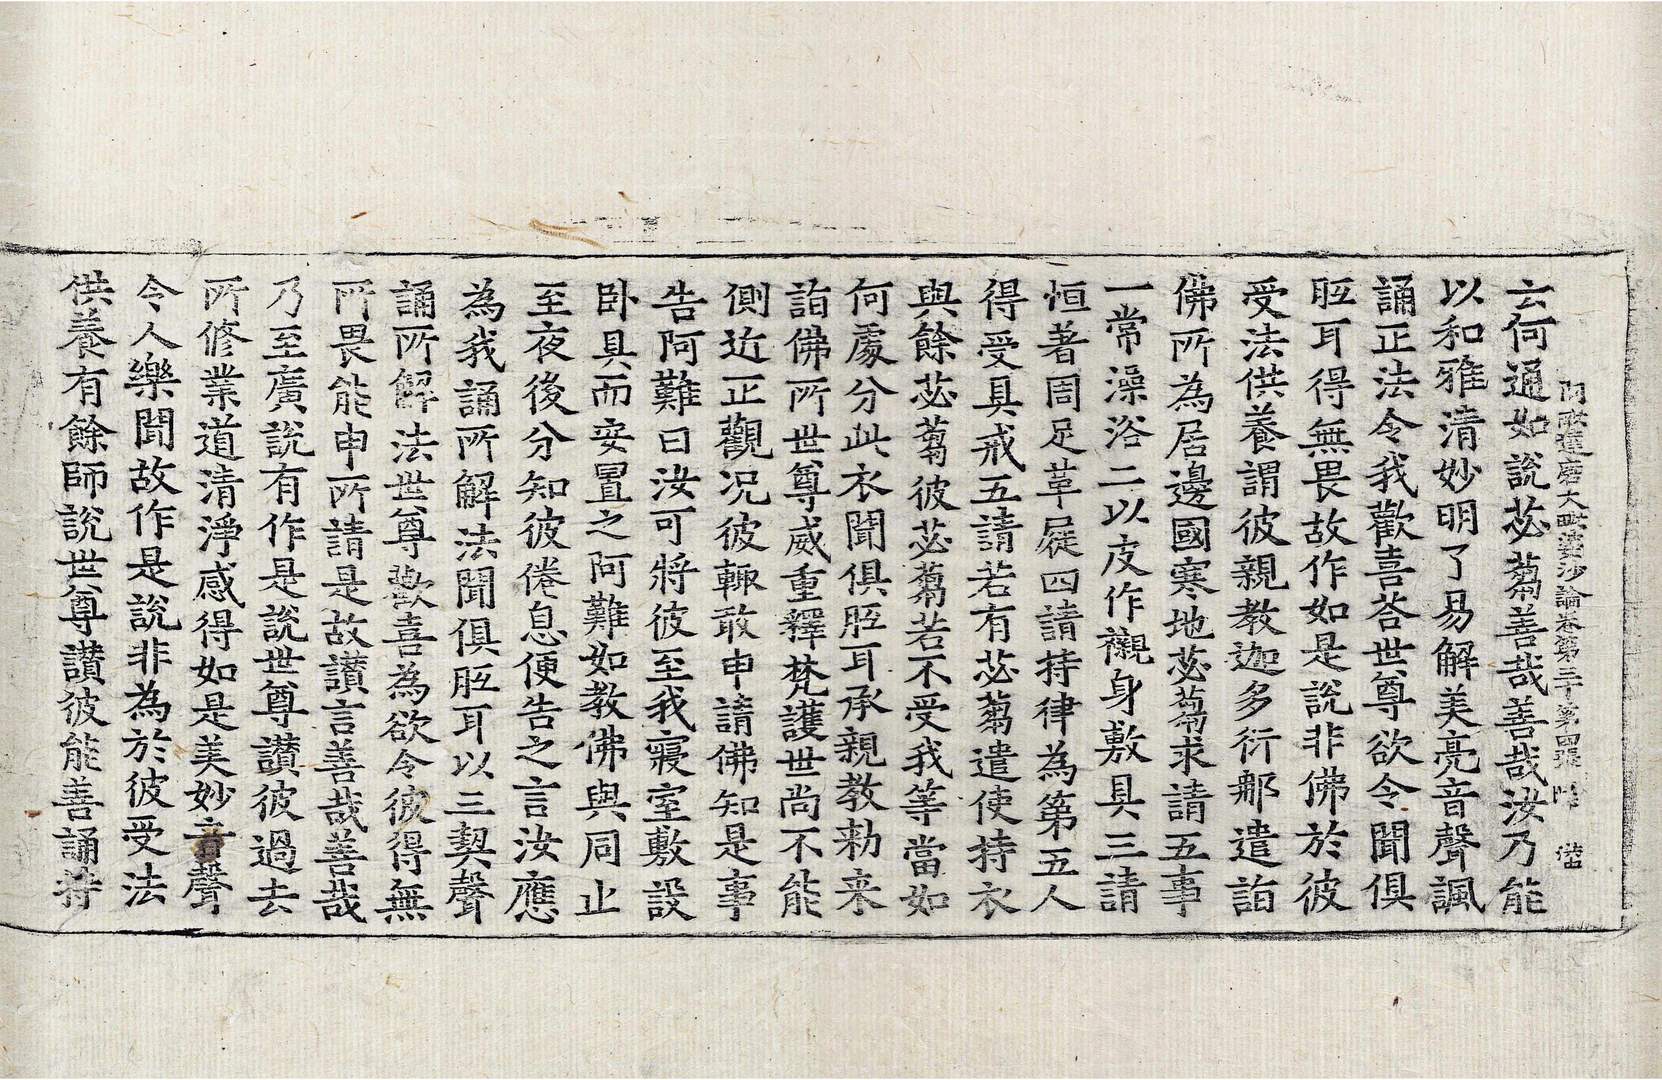 阿毗達磨大毗婆沙論卷第三十 第四張
云何通如說苾蒭善哉善哉汝乃能
以和雅清妙明了易解美亮音聲諷
誦正法令我歡喜荅世尊欲令聞俱
胝耳得無畏故作如是說非佛於彼
受法供養謂彼親教迦多衍那遣詣
佛所為居邊國寒地苾蒭求請五事
一常澡浴二以皮作襯身敷具三請
恒著周足革屣四請持律為第五人
得受具戒五請若有苾蒭遣使持衣
與餘苾蒭彼苾蒭若不受我等當如
何處分此衣聞俱胝耳承親教勑来
詣佛所世尊威重釋梵護世尚不能
側近正觀况彼輙敢申請佛知是事
告阿難曰汝可將彼至我寢室敷設
卧具而安置之阿難如教佛與同止
至夜後分知彼倦息便告之言汝應
為我誦所解法聞俱胝耳以三契聲
誦所解法世尊歡喜為欲令彼得無
所畏能申所請是故讃言善哉善哉
乃至廣說有作是說世尊讃彼過去
所修業道清淨感得如是美妙音聲
令人樂聞故作是說非為於彼受法
供養有餘師說世尊讃彼能善誦持